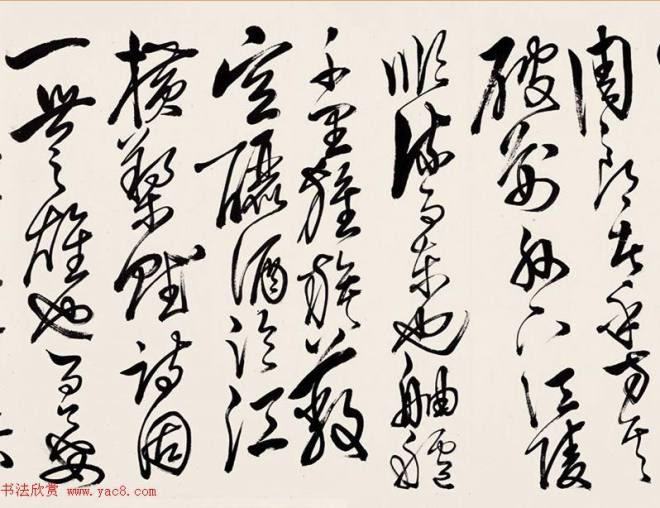 周郎者乎方其
破荆州下江陵
順流而東也舳艫
千里旌旗蔽
空釃酒临江
橫槊賦詩固
一世之雄也而今安
书法欣赏 www.yac8.com